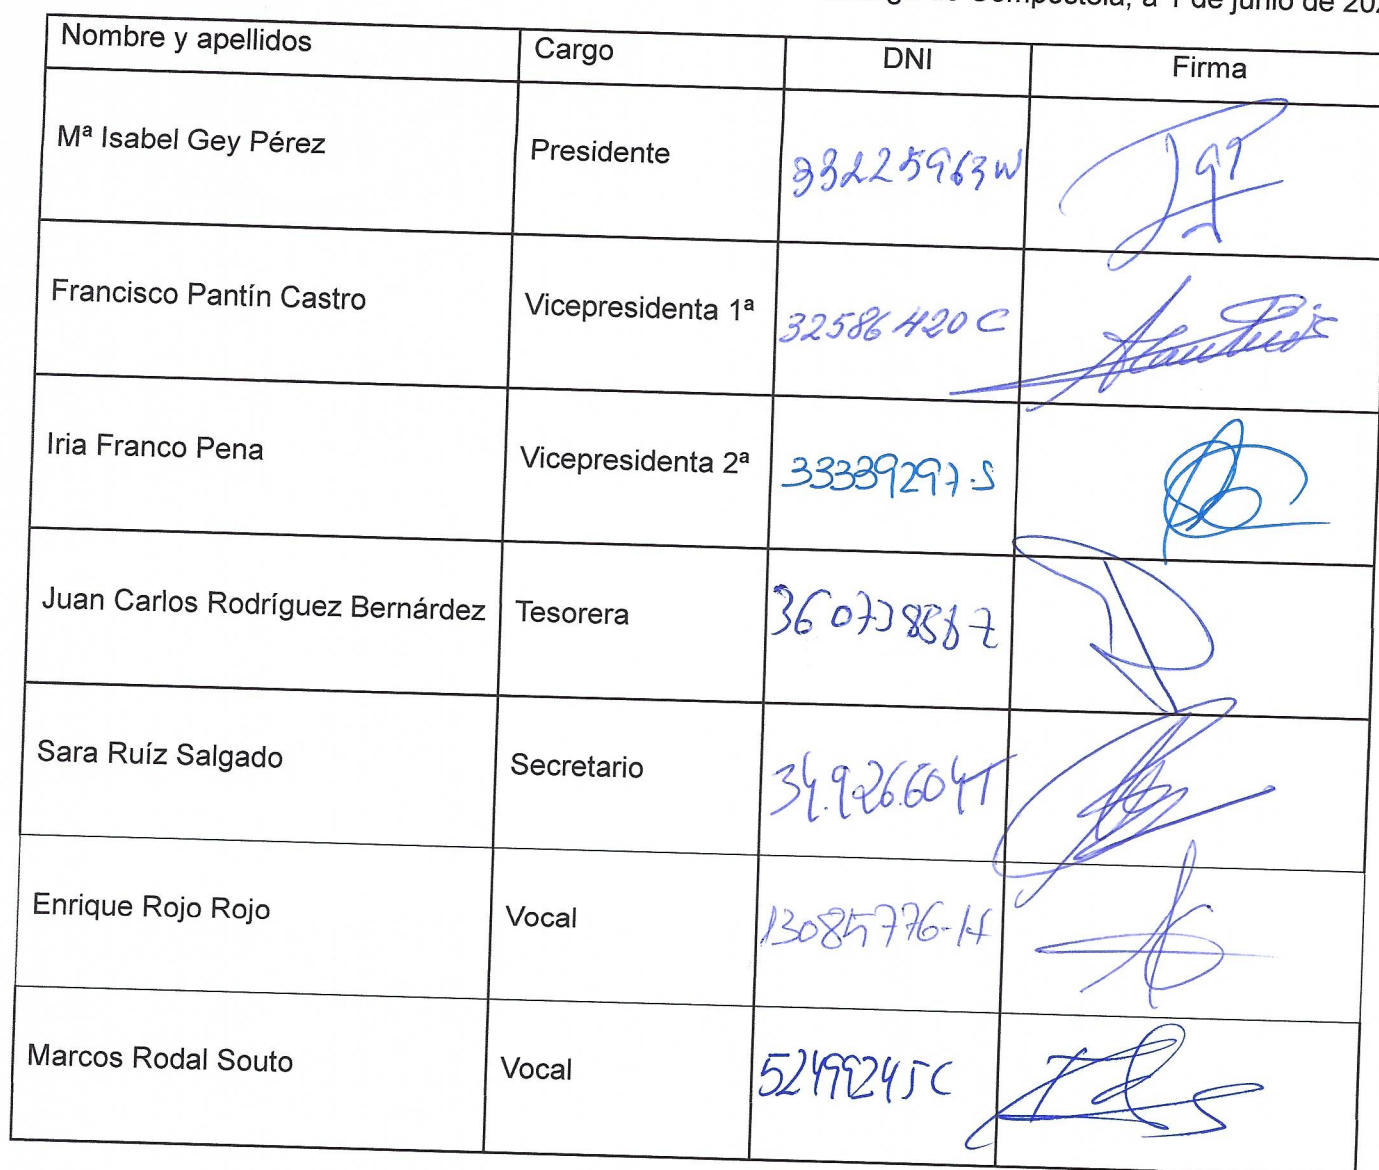 de Compostela, a 1 de junio de 202
Nombre y apellidos Cargo DNI Firma
Mª Isabel Gey Pérez Presidente 33225963W
Francisco Pantín Castro Vicepresidenta 1ª 32586420C
Iria Franco Pena Vicepresidenta 2ª 33339297-S
Juan Carlos Rodríguez Bernárdez Tesorera
Sara Ruíz Salgado Secretario 34.926.604T
Enrique Rojo Rojo Vocal 13085776-H
Marcos Rodal Souto Vocal 52499245C